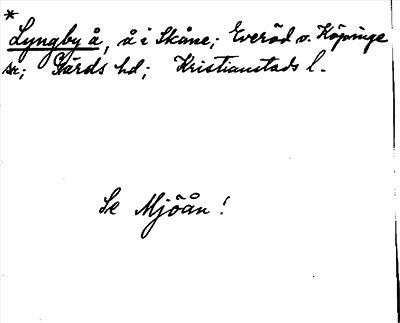 *
Lyngby å, å i Skåne; Everöd o. Köpinge
sn; Gärds hd; Kristianstads l.
Se Mjöån!